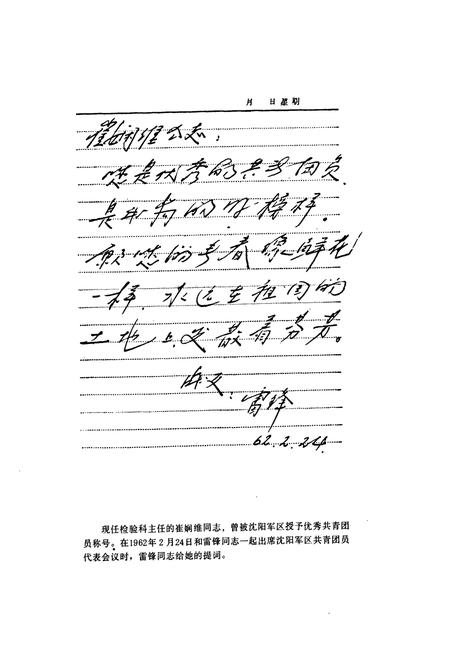 月 日 星期
崔娴维同志:
您是优秀的共青团员
是我的好榜样。
愿您的青春像鲜花
一样,永远在祖国的
土地上发散着芬芳。
战友:
雷锋
62.2.24.
现任检验科主任的崔娴维同志,曾被沈阳军区授予优秀共青团
员称号。在1962年2月24日和雷锋同志一起出席沈阳军区共青团员
代表会议时,雷锋同志给她的提词。